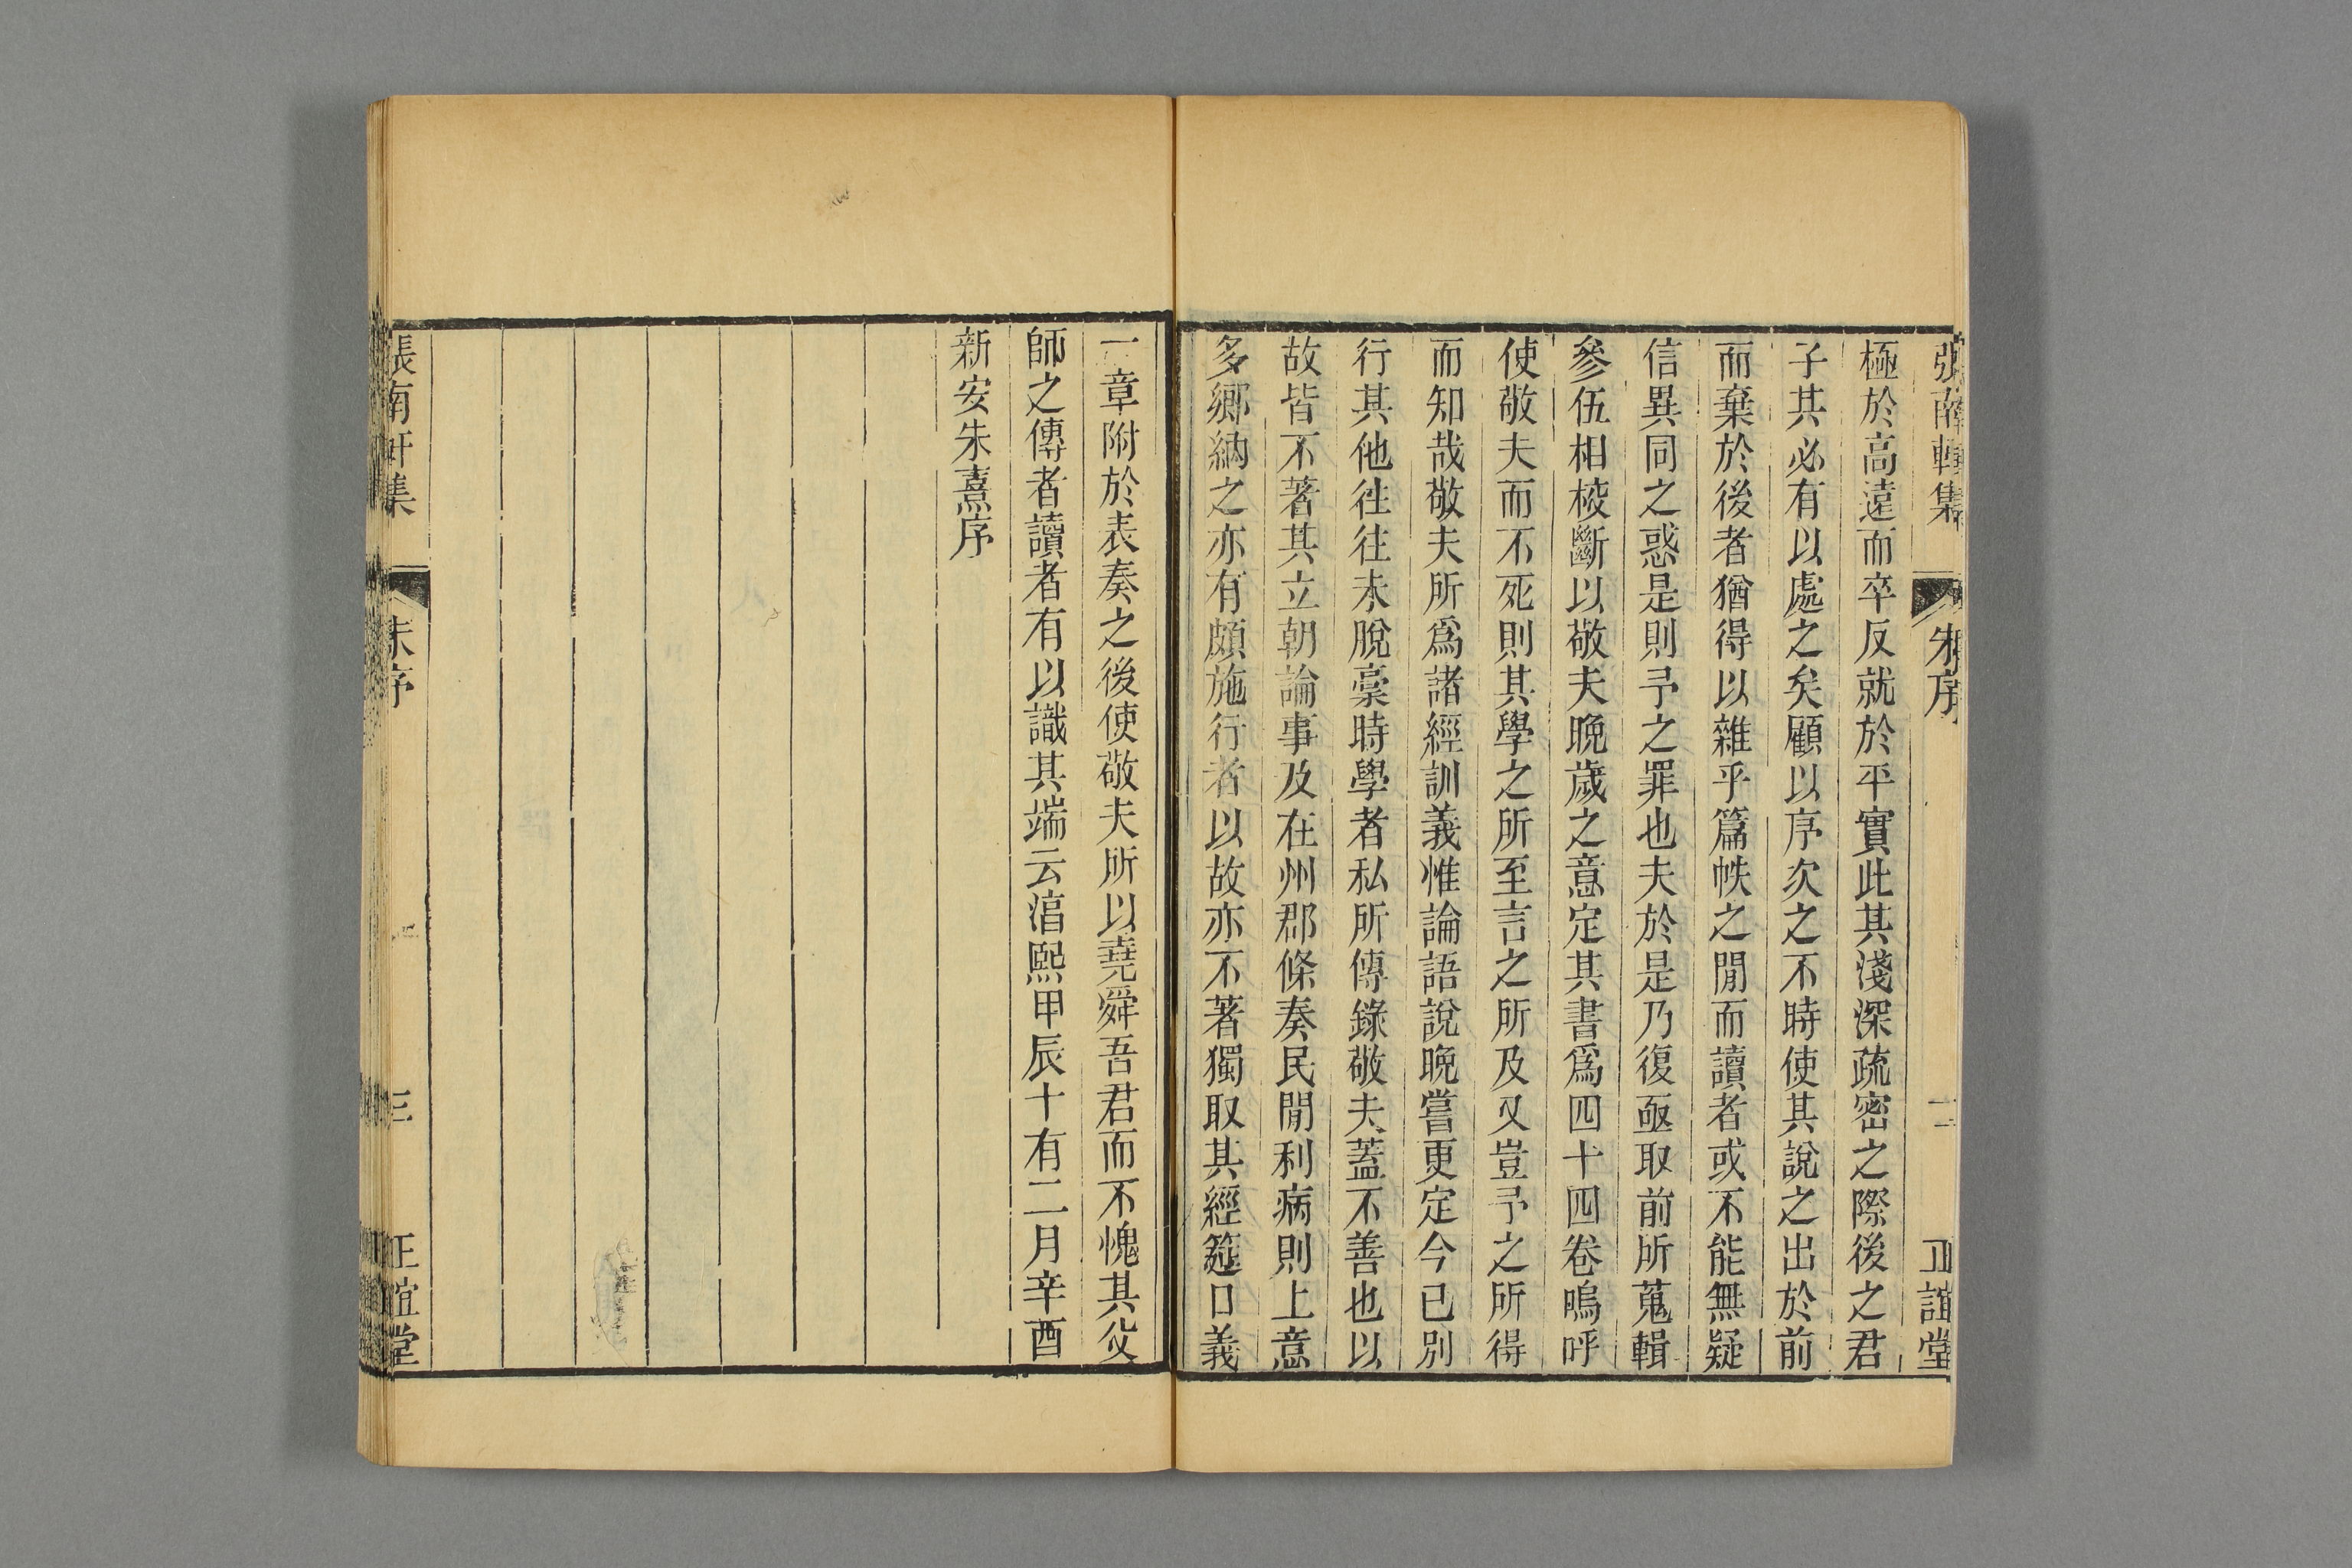 張南軒集
朱序
二
正誼堂
極於高遠而卒反就於平實此其淺深疏密之際後之君
子其必有以處之矣顧以序次之不時使其說之出於前
而棄於後者猶得以雜乎篇帙之閒而讀者或不能無疑
信異同之惑是則予之罪也夫於是乃復亟取前所蒐輯
參伍相校斷以敬夫晚歲之意定其書爲四十四卷嗚呼
使敬夫而不死則其學之所至言之所及又豈予之所得
而知哉敬夫所爲諸經訓義惟論語說晚嘗更定今已別
行其他徃徃未脫藁時學者私所傳錄敬夫蓋不善也以
故皆不著其立朝論事及在州郡條奏民閒利病則上意
多鄉納之亦有頗施行者以故亦不著獨取其經筵口義
一章附於表奏之後使敬夫所以堯舜吾君而不愧其父
師之傳者讀者有以識其端云淳熙甲辰十有二月辛酉
新安朱熹序
張南軒集
朱序
三
正誼堂